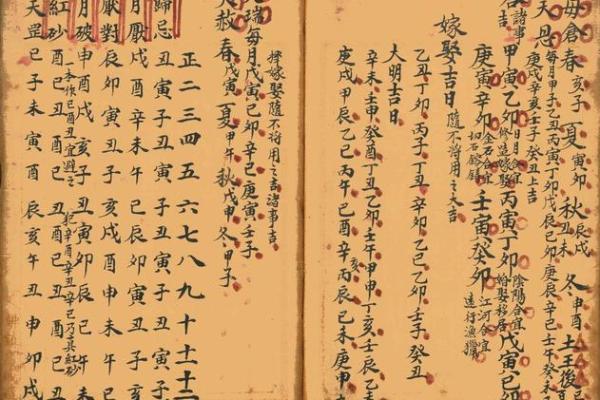 母倉春 亥子 夏 寅卯 秋 辰戌丑未 冬 申酉 土王後
天恩 每月甲子乙丑丙寅丁卯戊辰己卯庚辰辛巳壬午癸
庚戌辛亥壬子癸丑吉
吉 諸事
甲寅乙卯 日月合宜修造嫁娶 丙寅丁卯 陰陽合宜給娶移居 戊寅己卯
庚寅辛卯 金石合宜 壬寅癸卯 江河合宜遠行漁獵
嫁娶吉日 隨不將用之大吉
乙丑丁卯丙子丁丑辛卯乙巳乙卯壬子癸丑
大明吉日
辛未壬申癸酉丁丑乙卯壬午甲申丁亥壬辰乙
庚戌甲辰乙巳丙午己酉辛亥丙辰己未庚申
擇嫁娶隨不將用之吉諸事吉
天瑞每月戊寅己卯辛巳庚寅壬子
天赦春戊寅夏甲午秋戊申冬甲子
正二三四五六七八九十十一十二
歸忌 丑寅子丑寅子丑寅子丑寅子
月厭 戌酉辛未午巳辰卯寅丑子亥
厭對 辰卯寅丑子亥戌酉申未午巳
月破 申酉戌亥子丑寅卯辰巳午未
紅砂 酉巳丑酉巳丑酉巳丑酉巳丑
天罡 巳子未寅酉辰亥午丑申卯戌